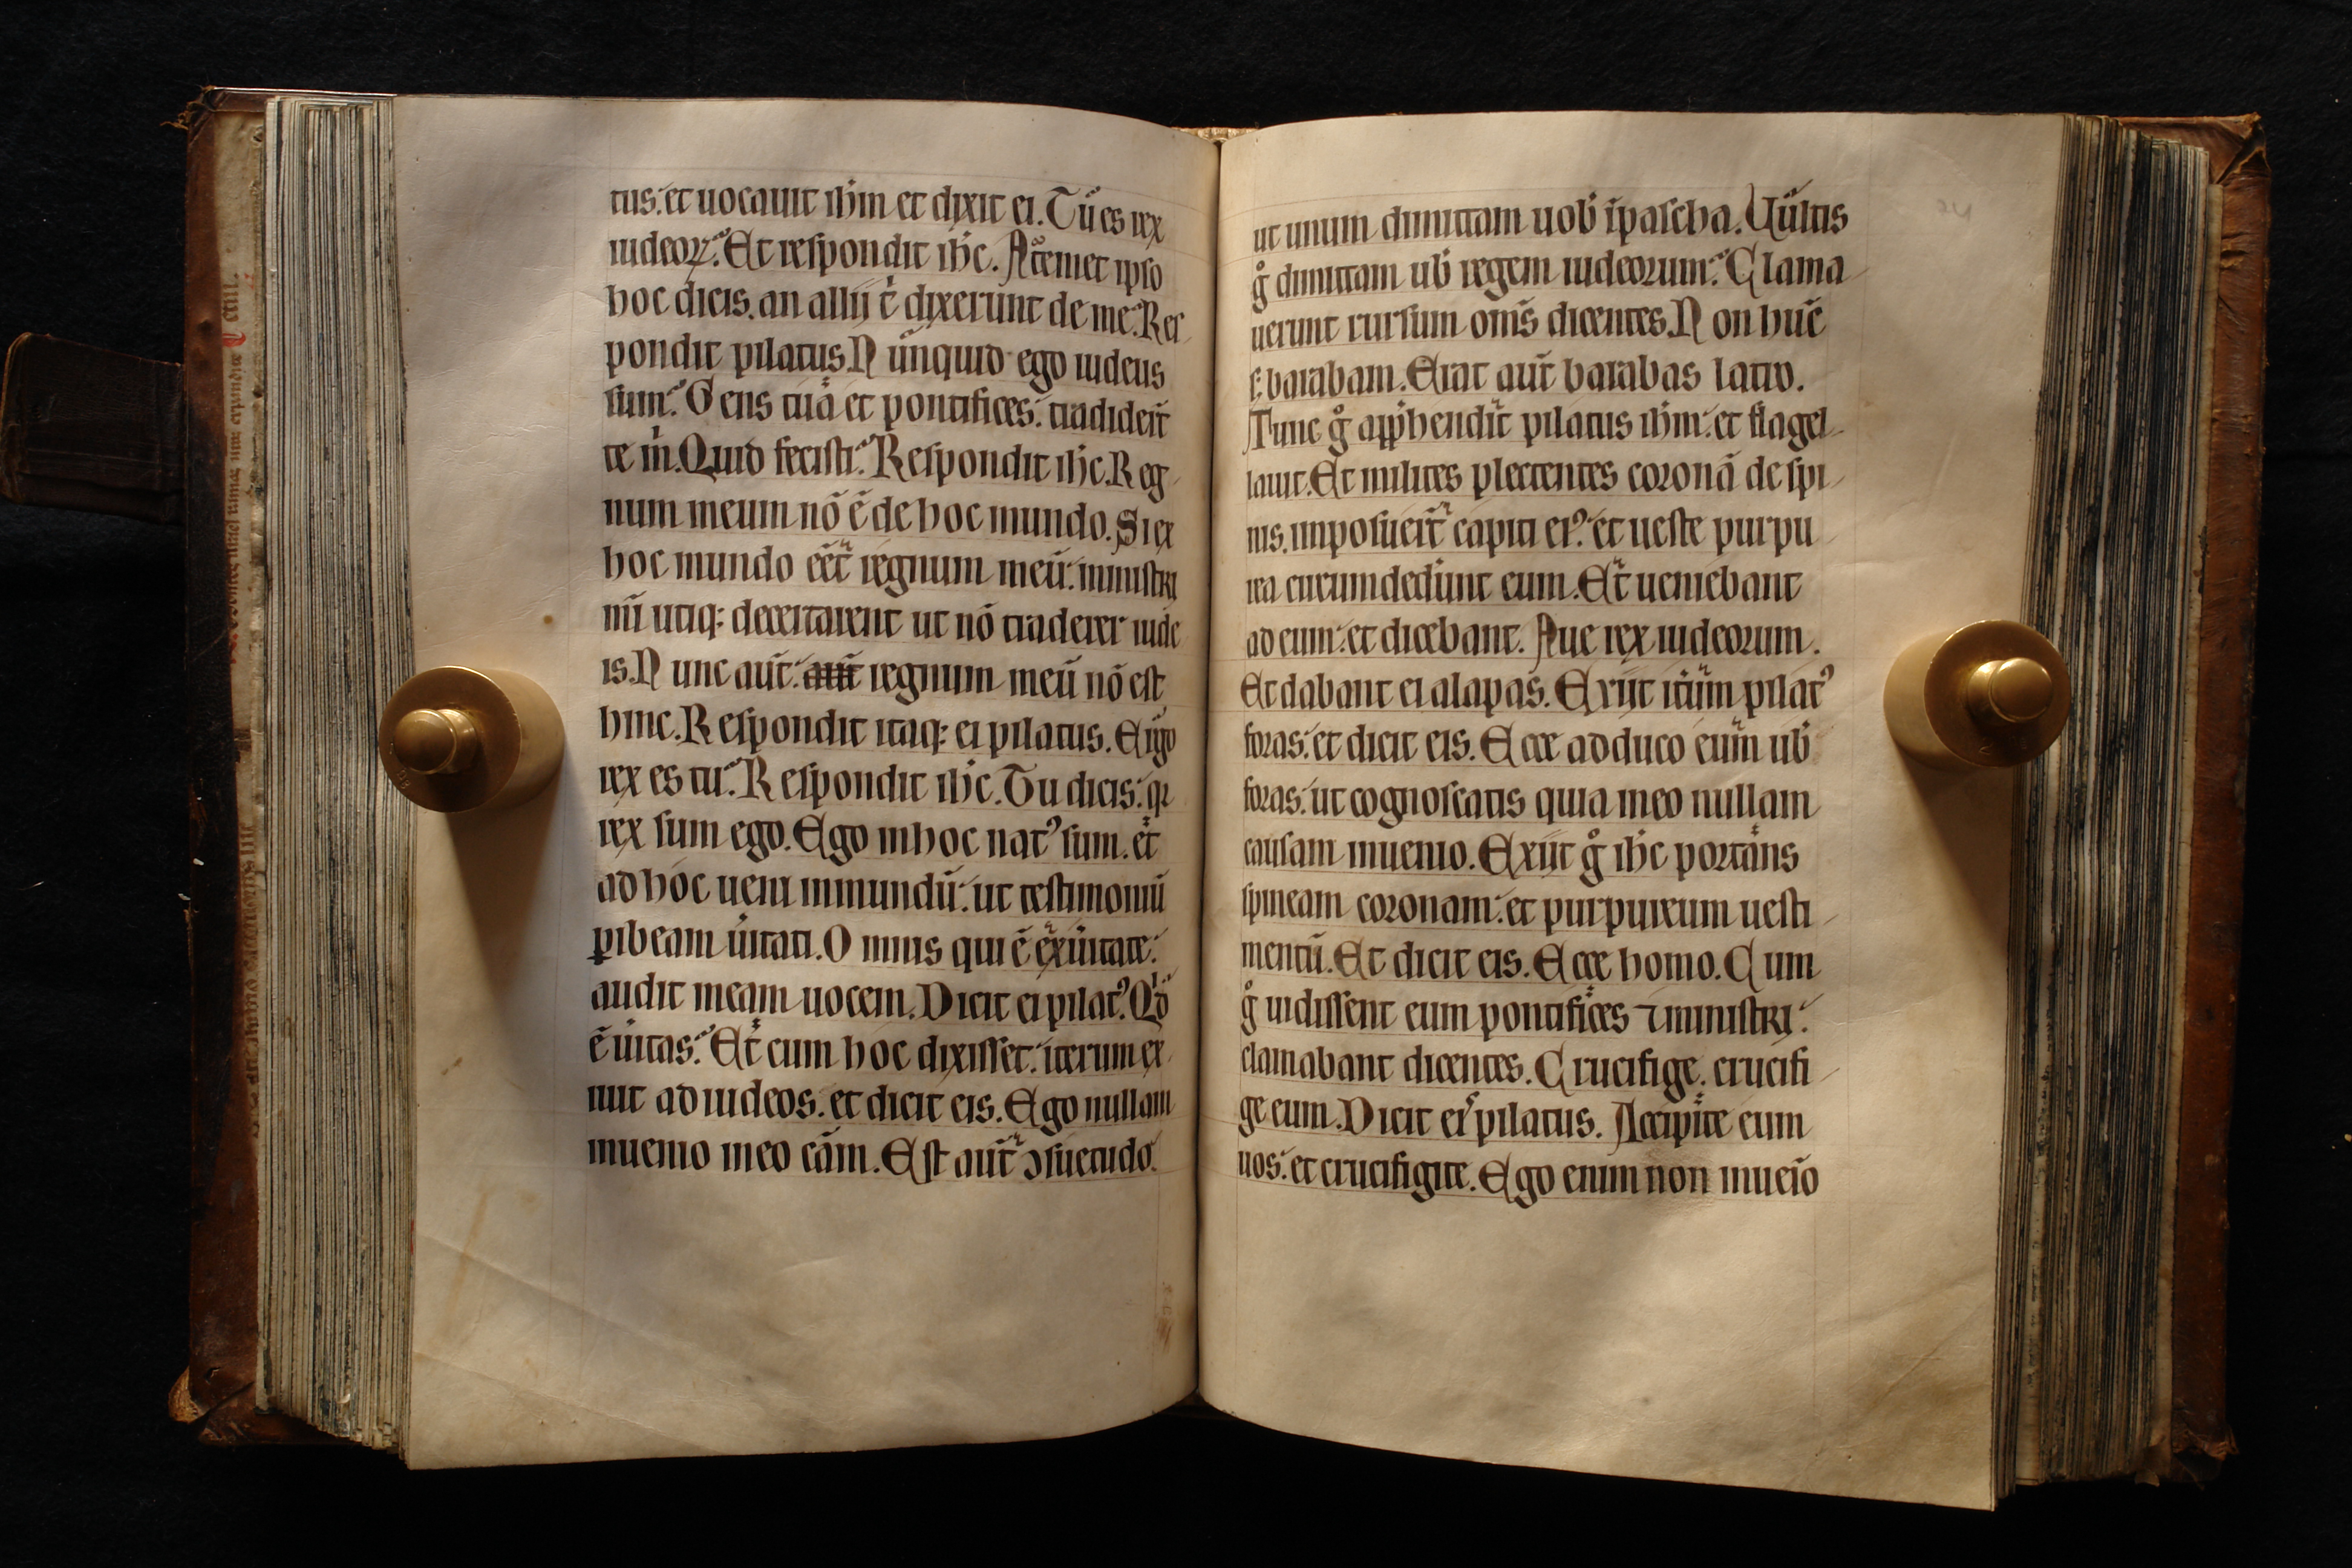 tus. et uocauit ihm et dixit ei. Tu es rex
iudeoꝝ. Et respondit ihc. A temet ipso
hoc dicis. an alii t̄ dixerunt de me. Res
pondit pilatus. N unquid ego iudeus
sum. Gens tua et pontifices. tradider̄t
te m̄. Quid fecisti. Respondit ihc. Reg
num meum nō ē de hoc mundo. Si ex
hoc mundo eēt regnum meū. ministri
mī utiqꝫ decertarent ut nō traderer iude
is. N unc aūt. aūt regnum meū nō est
hinc. Respondit itaqꝫ ei pilatus. Ergo
rex es tu. Respondit ihc. Tu dicis. qꝛ
rex sum ego. Ego in hoc natꝰ sum. et
ad hoc ueni in mundū. ut testimoniū
ꝑibeam ūitati. O mnis qui ē ex ūitate.
audit meam uocem. Dicit ei pilatꝰ. Qd̄
ē ūitas. Et cum hoc dixisset. iterum ex
iuit ad iudeos. et dicit eis. Ego nullam
inuenio in eo cām. Est aūt ɔsuetudo.
ut unum dimittam uob̄ ī pascha. Uultis
gͦ dimittam ub̄ regem iudeorum. Clama
uerunt rursum om̄s dicentes. N on hūc
sꝫ barabam. Erat aūt barabas latro.
Tunc gͦ app̄hendit pilatus ihm. et flagel
lauit. Et milites plectentes coronā de spi
nis. imposuer̄t capiti eiꝰ. et ueste purpu
rea circumdedūnt eum. Et ueniebant
ad eum. et dicebant. Aue rex iudeorum.
Et dabant ei alapas. Exiit itūm pilatꝰ
foras. et dicit eis. Ecce adduco eum ub̄
foras. ut cognoscatis quia in eo nullam
causam inuenio. Exiit gͦ ihc portans
spineam coronam. et purpureum uesti
mentū. Et dicit eis. Ecce homo. Cum
gͦ uidissent eum pontifices ⁊ ministri.
clamabant dicentes. Crucifige. crucifi
ge eum. Dicit eis pilatus. Accipite eum
uos. et crucifigite. Ego enim non inueīo